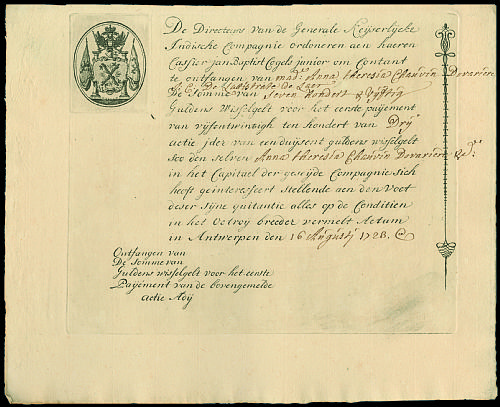 De Directeurs van de Generale Keyserlycke
Indische Compagnie ordoneren aen haeren
Cassier jan Baptist Cogels junior om Contant
te ontfangen van mad.e Anna theresia Chauvin Devariere
De Somme van Seven Hondert & Vijftig
Guldens Wisselgelt voor het eerste payement
van vijfentwintigh ten hondert van Drij
actie jder van eenduysent guldens wisselgelt
See den selven Anna theresia Chauvin Devariere
in het Capitael der geseyde Compagnie sich
heeft geinteresseert stellende aen den voet
deser sijne quitantie alles op de Conditien
in het Octroy breeder vermelt Actum
in Antwerpen den 16 Augustij 1723.
Ontfangen van
De Somme van
Guldens wisselgelt voor het eerste
Payement van de bovengemelde
actie Adij